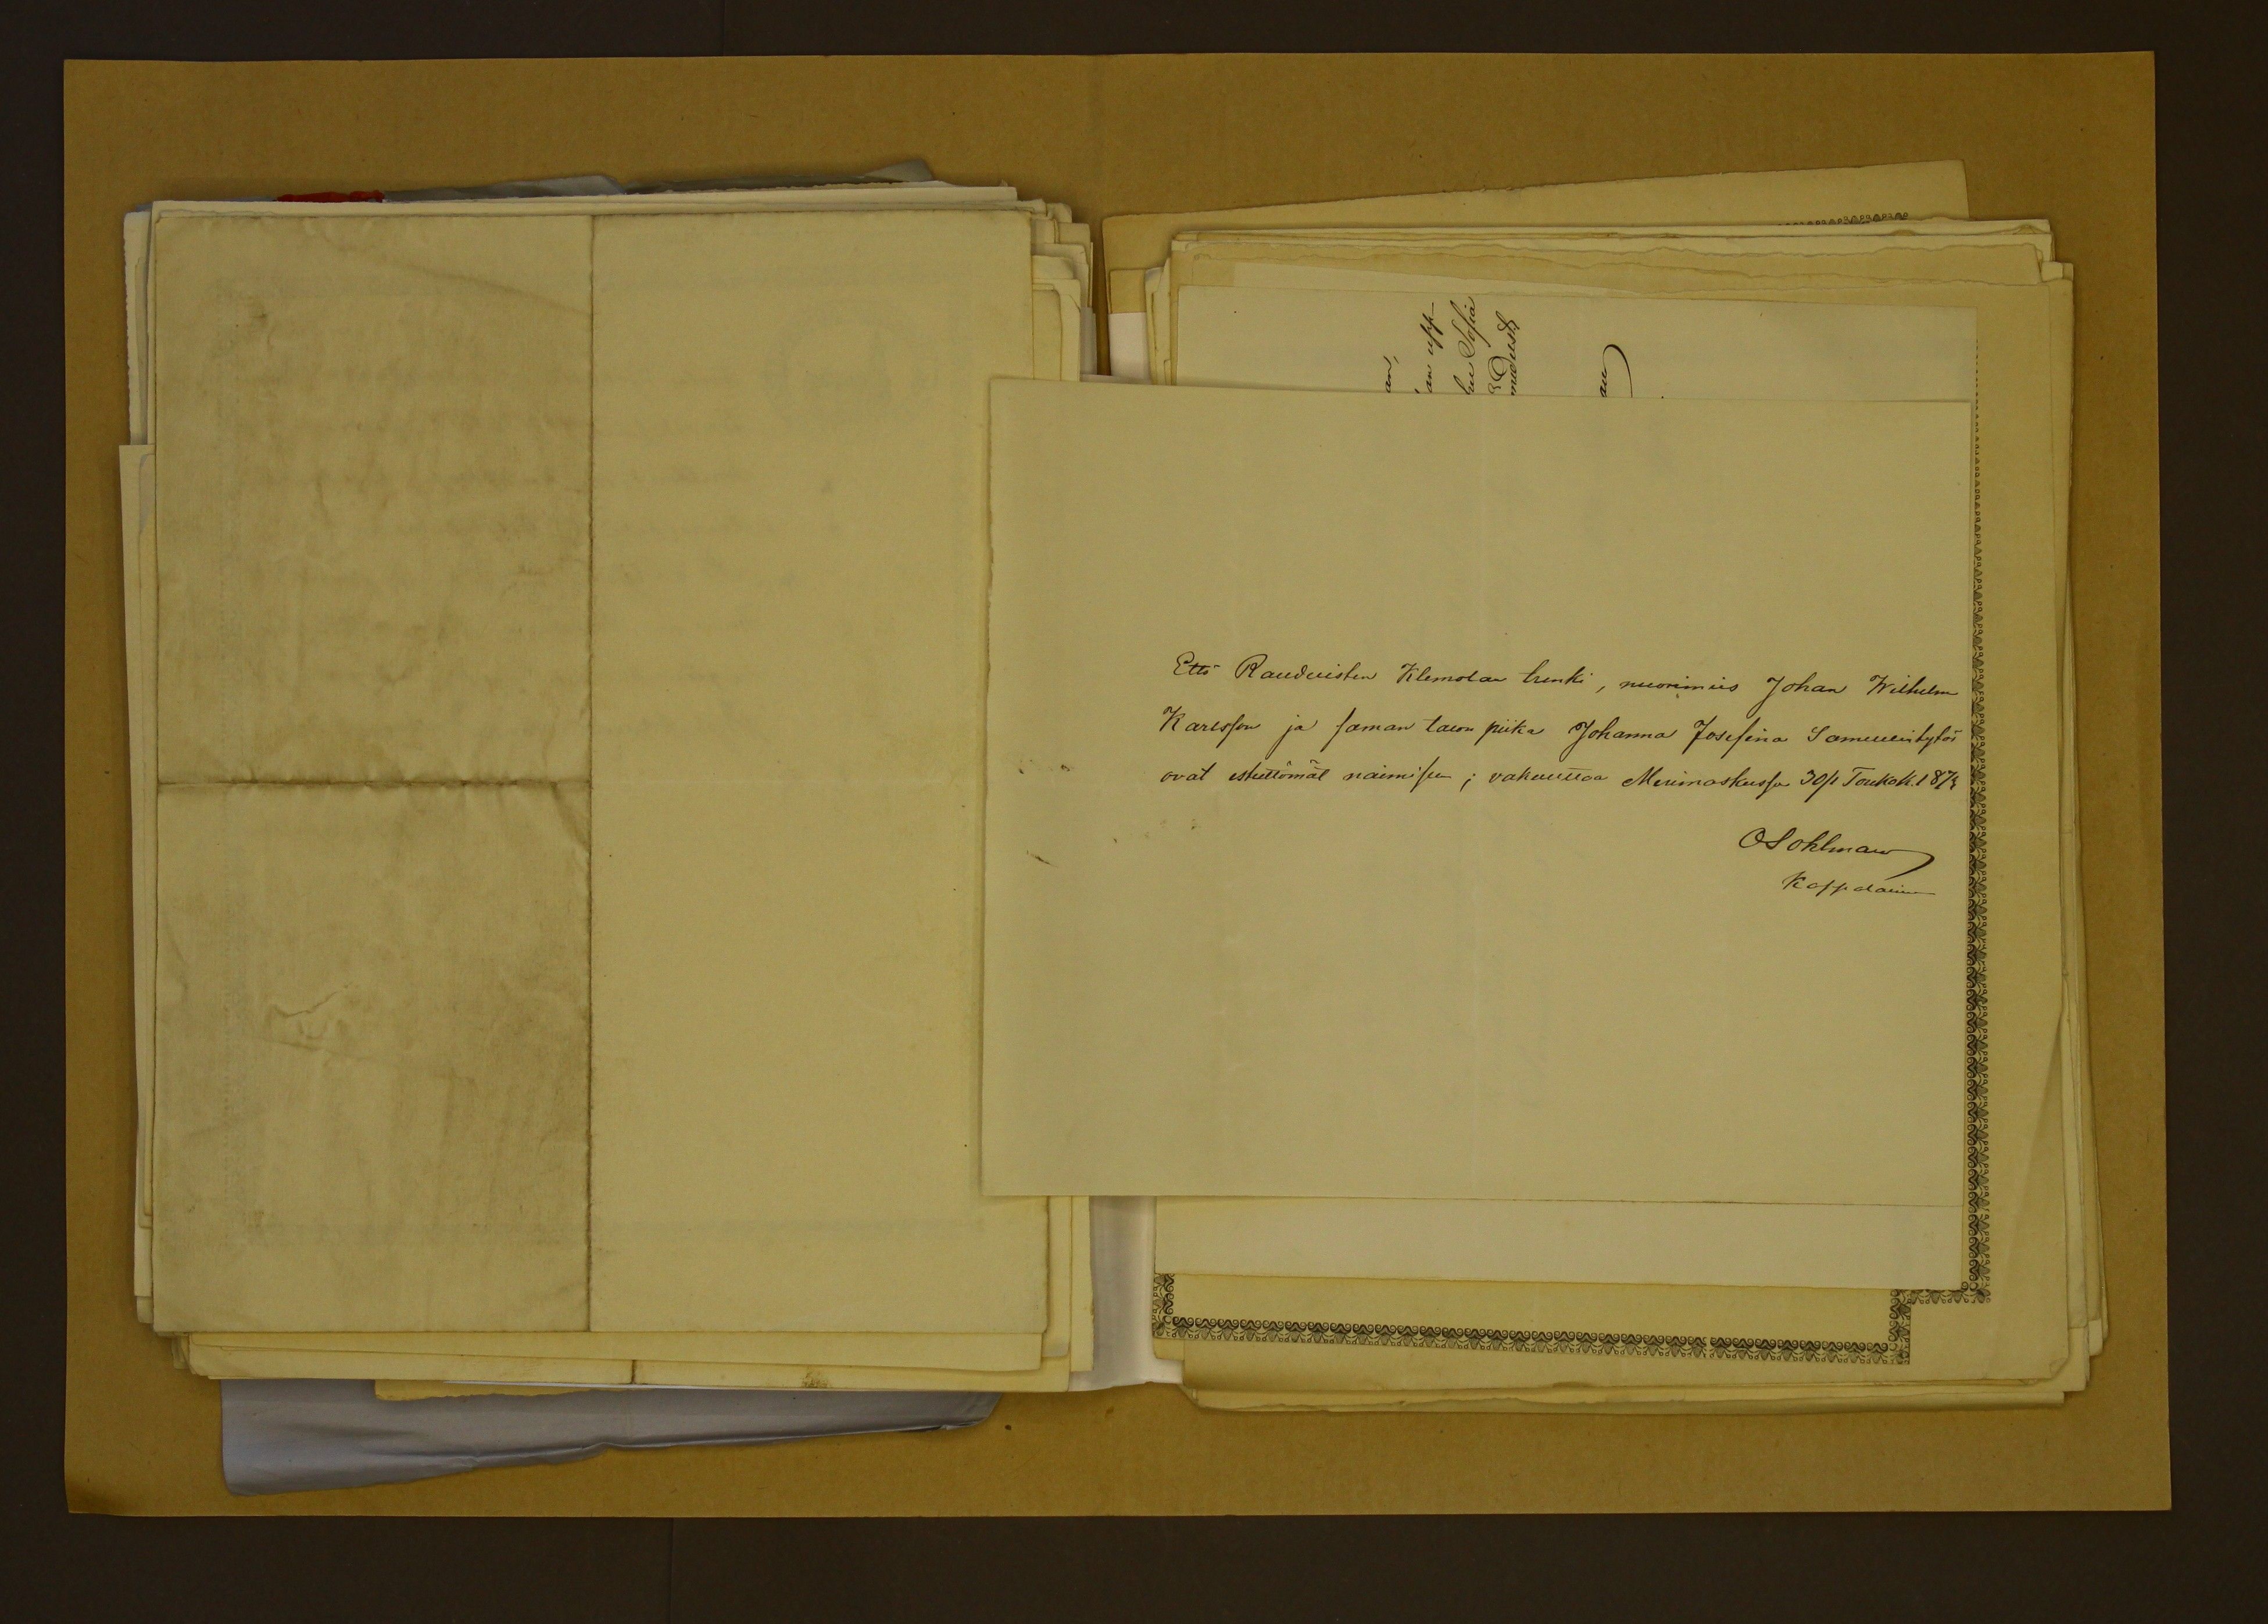 an,
an upp-
Sofia
an
Että Rauduisten Klemolan renki, nuorimies Johan Wilhelm
Karlsson ja saman talon piika Johanna Josefina Samuelintytär
ovat esteettömät naimiseen; vakuuttaa Merimaskussa 30/1 Toukok. 187
O Sohlman
Kappalainen